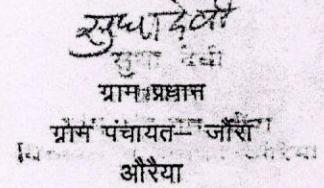 सुधा देवी
सुधा देवी
ग्राम प्रधान
ग्राम पंचायत– जौरा
औरैया